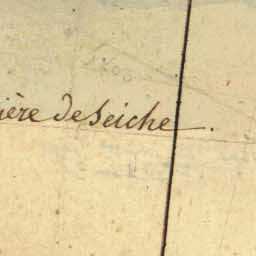 ière de Seiche.